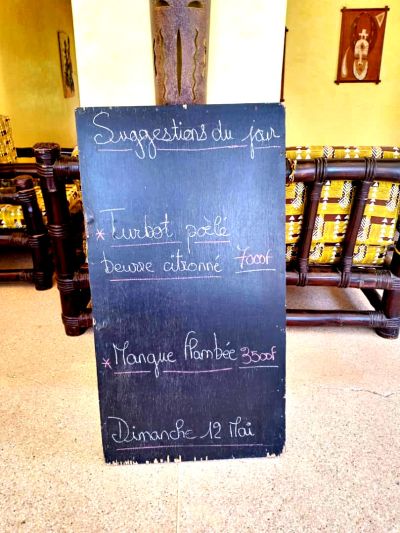 Suggestions du jour
* Turbot poêlé
beurre citronné 7000f
* Mangue flambée 3500f
Dimanche 12 Mai